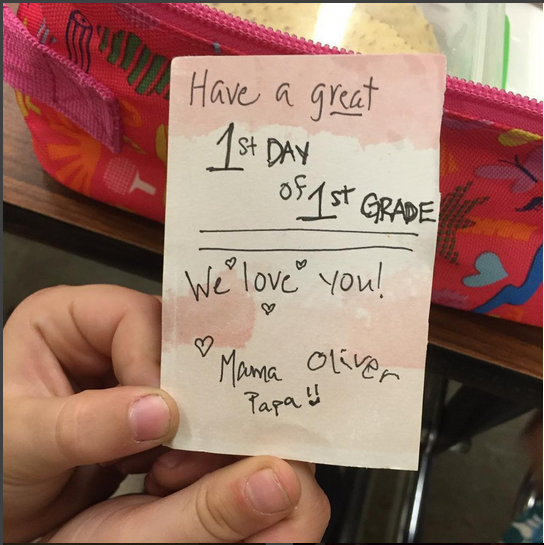 Have a great
1st DAY
of 1st GRADE
We love you!
Mama Oliver
Papa